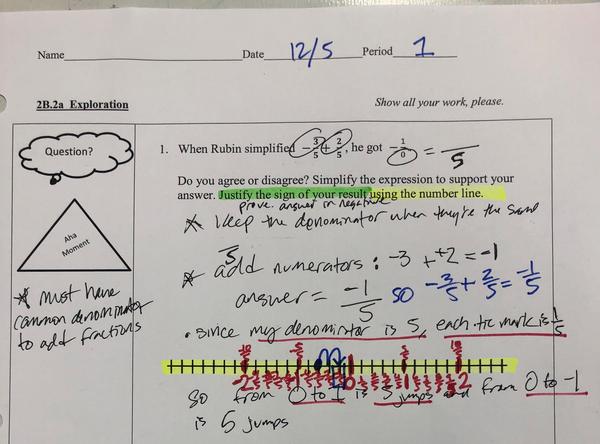 Name Date 12/5 Period 1
2B.2a Exploration Show all your work, please.
Question?
1. When Rubin simplified -3/5 + 2/5, he got -1/0 = /5
Do you agree or disagree? Simplify the expression to support your
answer. Justify the sign of your result using the number line.
prove answer negative
* keep the denominator when they're the same
5
Aha
Moment
* add numerators: -3 + +2 = -1
answer = -1/5 so -3/5 + 2/5 = -1/5
* must have
common denominator
to add fractions
• since my denominator is 5, each tic mark is 1/5
-10/5 -5/5 5/5 10/5
-2 -1 0 1 2
so from 0 to 1 is 5 jumps and from 0 to -1
is 5 jumps